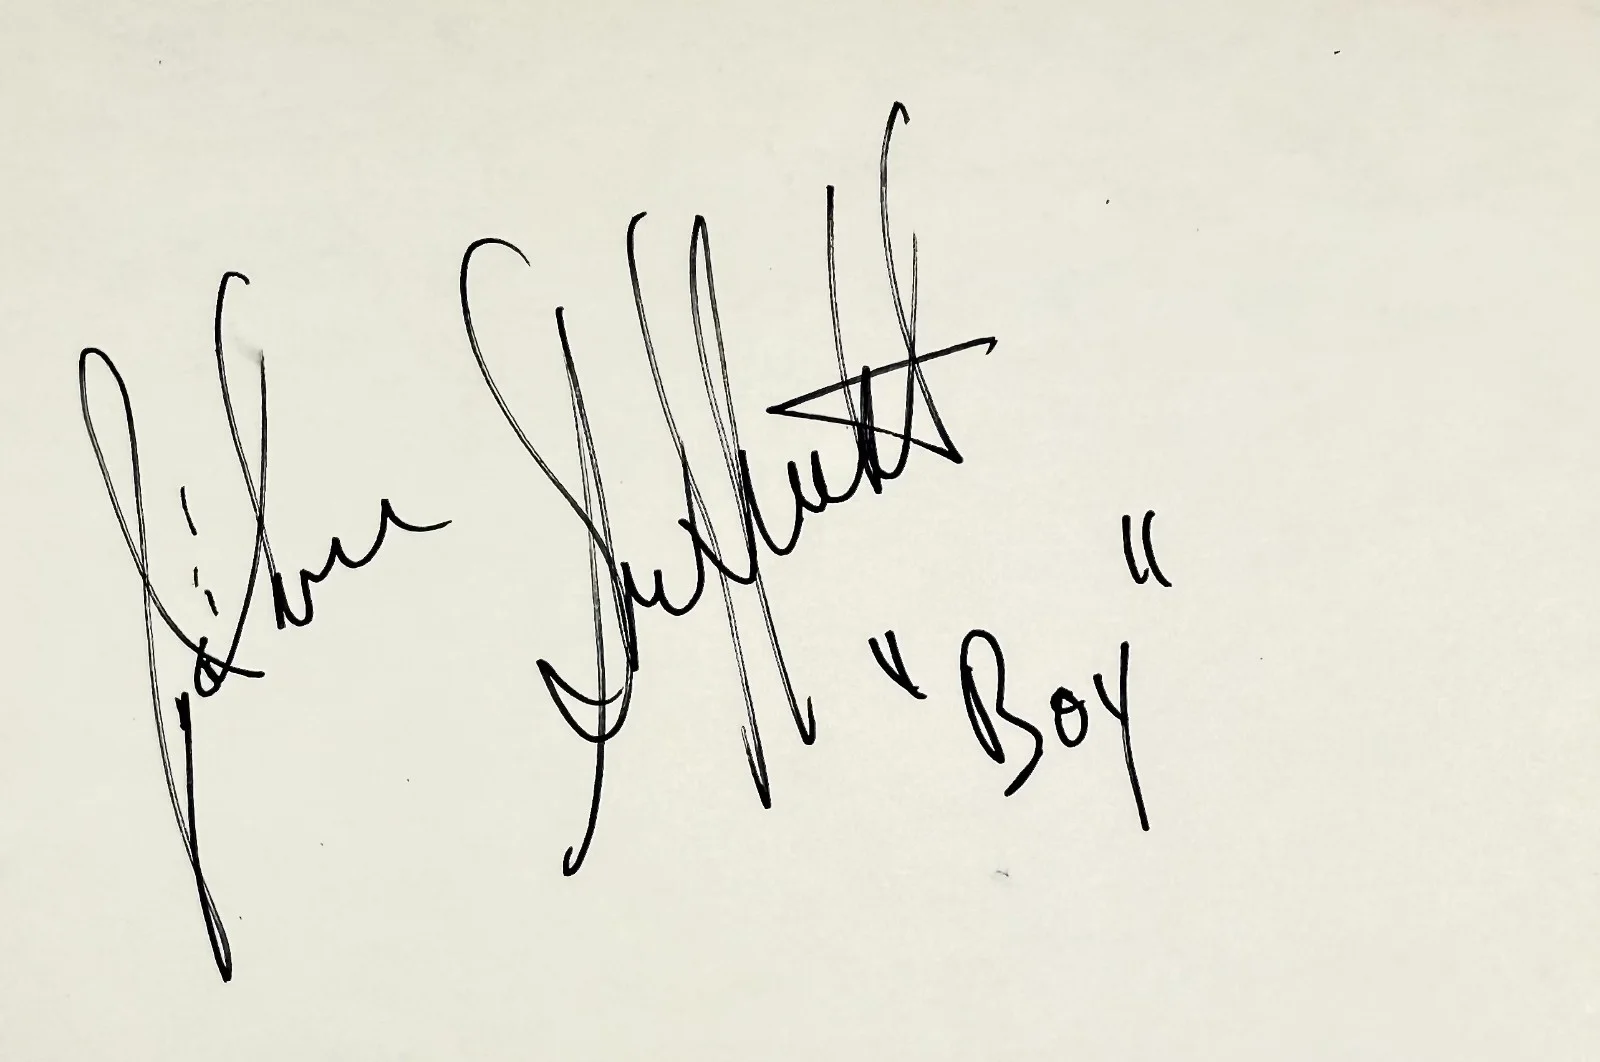 Johnny Sheffield
"Boy"